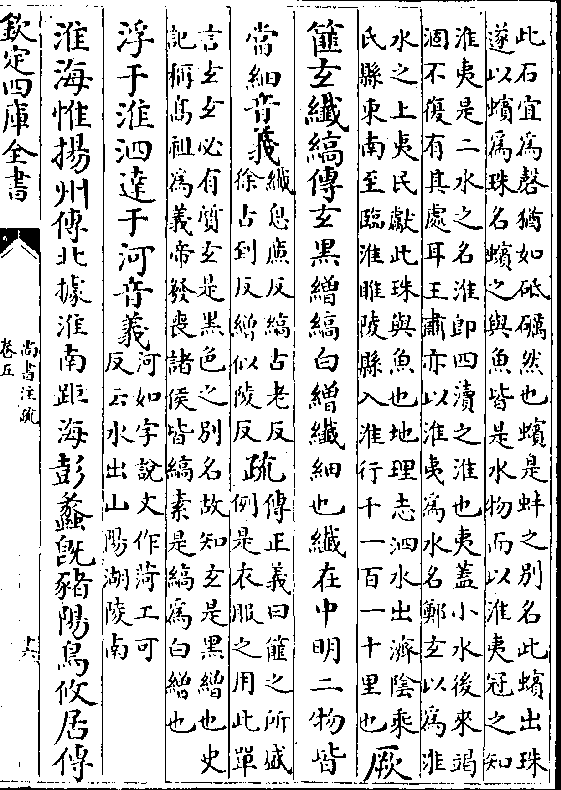 此石宜為磬猶如砥礪然也蠙是蚌之別名此蠙出珠
遂以蠙為珠名蠙之與魚皆是水物而以淮夷冠之知
淮夷是二水之名淮即四瀆之淮也夷蓋小水後來竭
涸不復有其處耳王肅亦以淮夷為水名鄭玄以為淮
水之上夷民獻此珠與魚也地理志泗水出濟陰乘
氏縣東南至臨淮睢陵縣入淮行千一百一十里也
厥
篚玄纖縞傳玄黑繒縞白繒纖細也纖在中明二物皆
當細音義
纖息㢘反縞古老反
徐古到反繒似陵反
疏
傳正義曰篚之所盛
例是衣服之用此單
言玄玄必有質玄是黑色之別名故知玄是黑繒也史
記稱髙祖為義帝發喪諸侯皆縞素是縞為白繒也
浮于淮泗達于河音義
河如字說文作菏工可
反云水出山陽湖陵南
淮海惟揚州傳北據淮南距海彭蠡既豬陽鳥攸居傳
欽定四庫全書
尚書注疏
卷五
十六